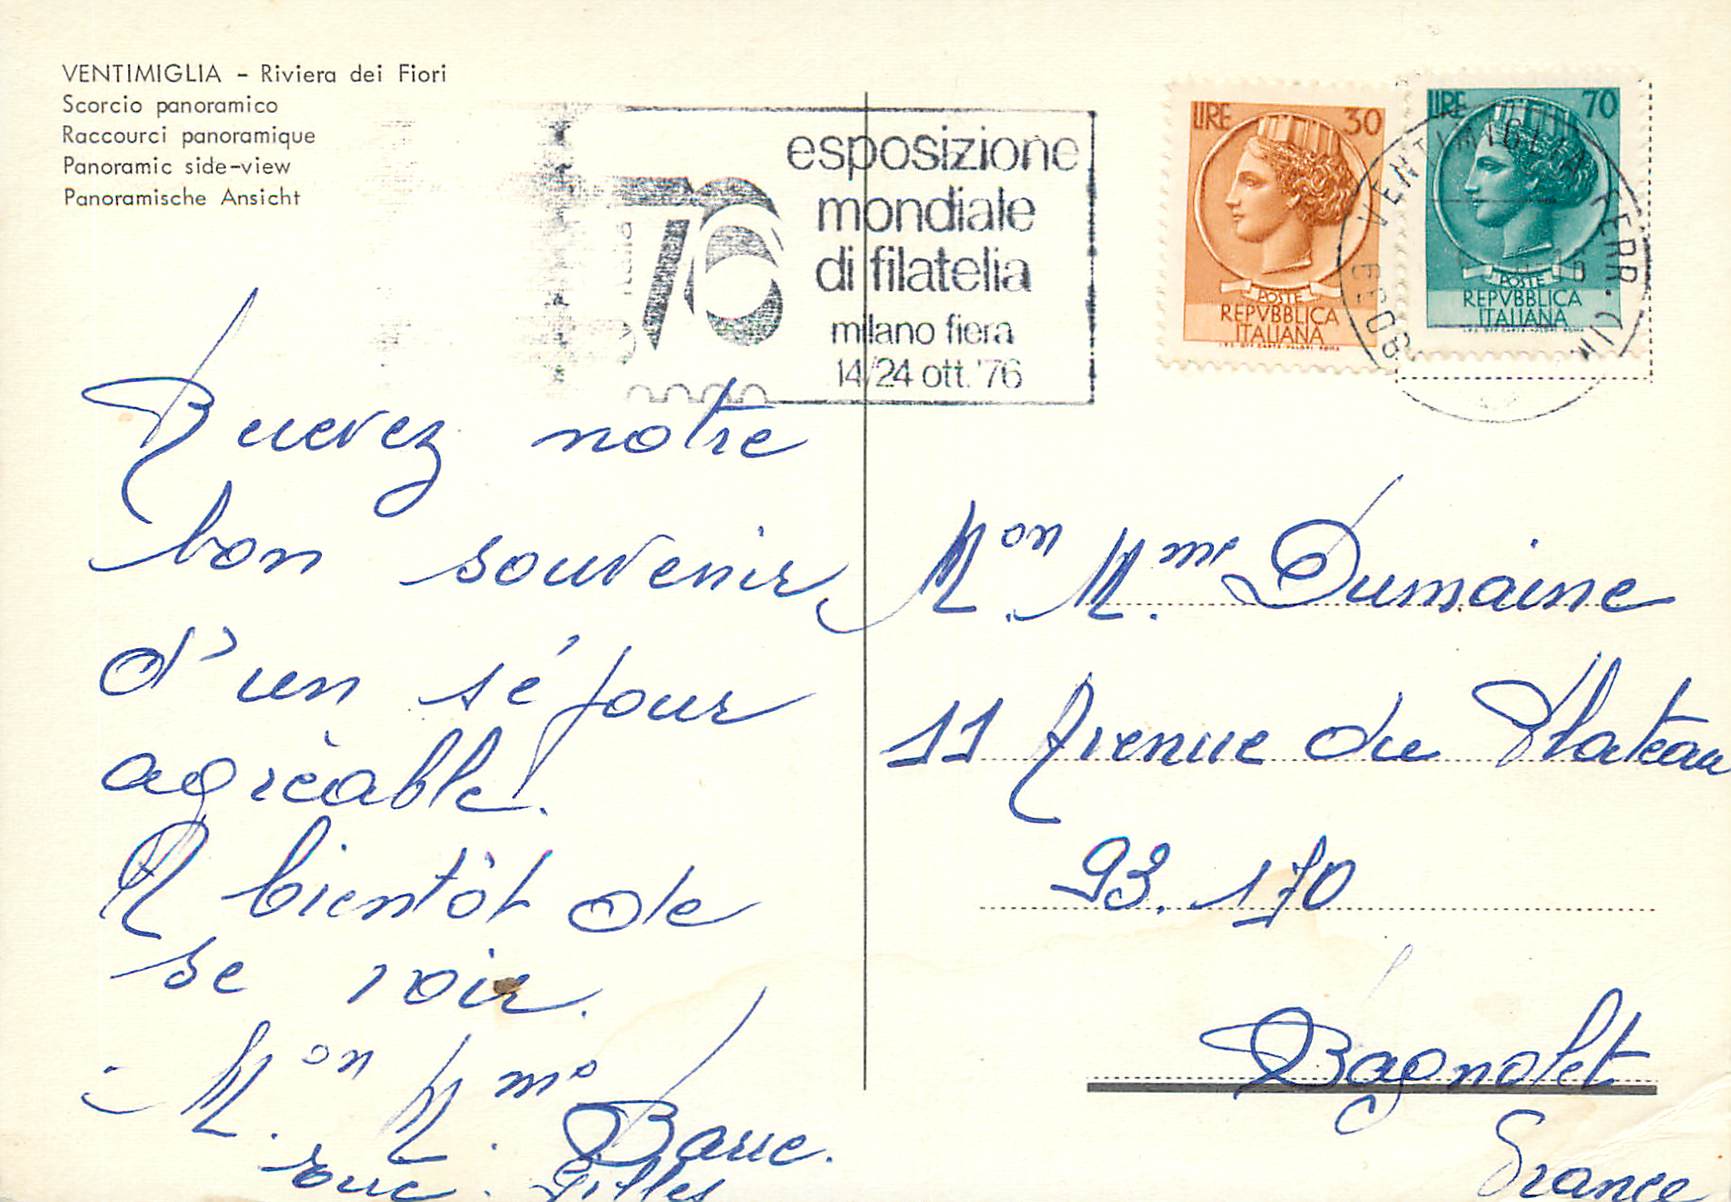 VENTIMIGLIA – Riviera dei Fiori
Scorcio panoramico
Raccourci panoramique
Panoramic side-view
Panoramische Ansicht
italia
76
esposizione
mondiale
di filatelia
milano fiera
14/24 ott. '76
LIRE 30
POSTE
REPVBBLICA
ITALIANA
LIRE 70
POSTE
REPVBBLICA
ITALIANA
VENTIMIGLIA FERR. (IM
notre
bon souvenir,
d'un séjour
agrèable.
A bientôt de
se voir.
Mon. Mme.
Gilles
Mon. Mme. Dumaine
11 Avenue du Plateau
93.170
Bagnolet
France